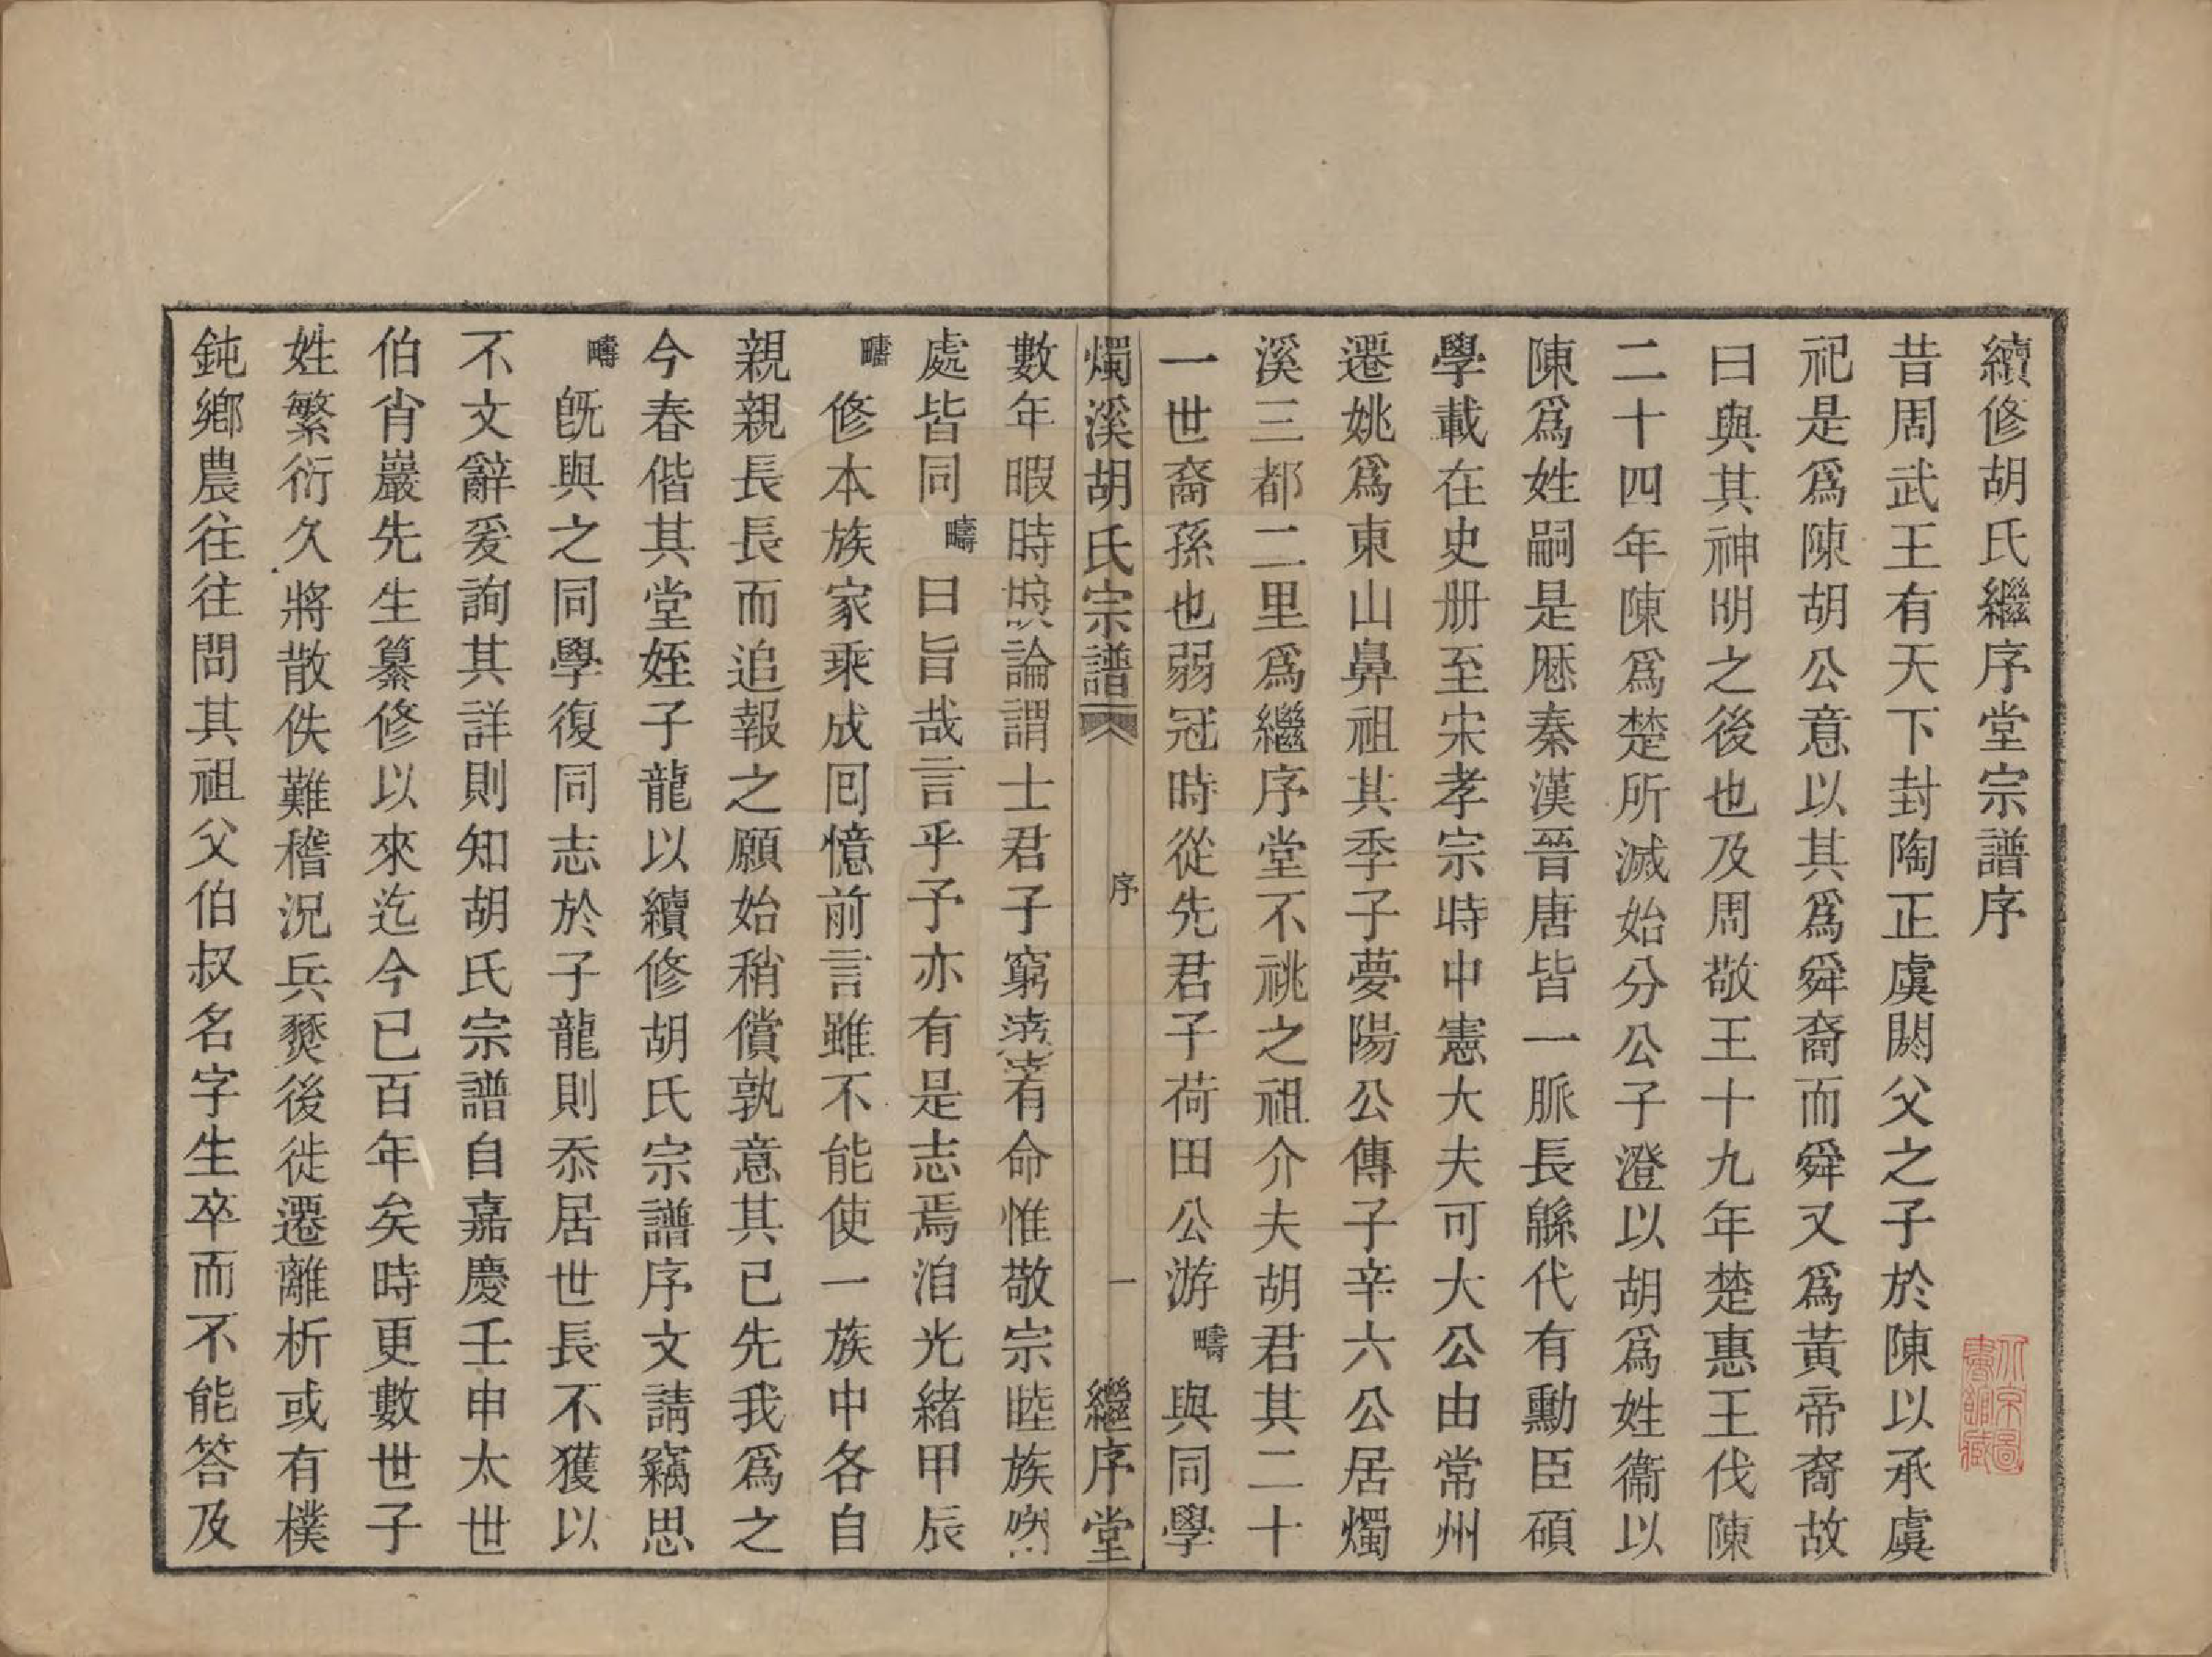 續修胡氏繼序堂宗譜序
昔周武王有天下封陶正虞閼父之子於陳以承虞
祀是爲陳胡公意以其爲舜裔而舜又爲黃帝裔故
曰與其神明之後也及周敬王十九年楚惠王伐陳
二十四年陳爲楚所滅始分公子澄以胡爲姓衞以
陳爲姓嗣是厯秦漢晉唐皆一脈長緜代有勳臣碩
學載在史册至宋孝宗時中憲大夫可大公由常州
遷姚爲東山鼻祖其季子夢陽公傳子辛六公居燭
溪三都二里爲繼序堂不祧之祖介夫胡君其二十
一世裔孫也弱冠時從先君子荷田公游疇與同學
燭溪胡氏宗譜 序 一 繼序堂
數年暇時談論謂士君子窮達有命惟敬宗睦族
處皆同疇曰旨哉言乎予亦有是志焉洎光緒甲辰
疇修本族家乘成囘憶前言雖不能使一族中各自
親親長長而追報之願始稍償孰意其已先我爲之
今春偕其堂姪子龍以續修胡氏宗譜序文請竊思
疇旣與之同學復同志於子龍則忝居世長不獲以
不文辭爰詢其詳則知胡氏宗譜自嘉慶壬申太世
伯肖巖先生纂修以來迄今已百年矣時更數世子
姓繁衍久將散佚難稽況兵燹後徙遷離析或有樸
鈍鄉農往往問其祖父伯叔名字生卒而不能答及
北京圖
書館藏